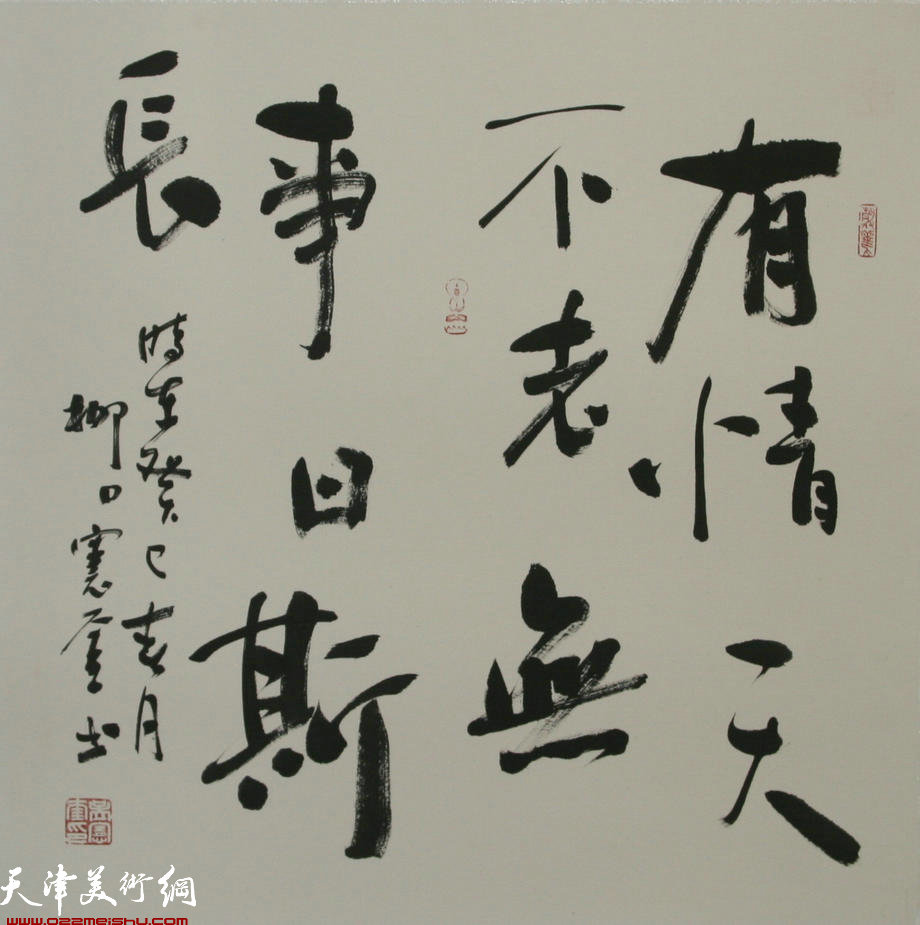 有情天
不老無
事日斯
長
時在癸巳春月
柳口憲奎书
天津美術網
www.022meishu.com